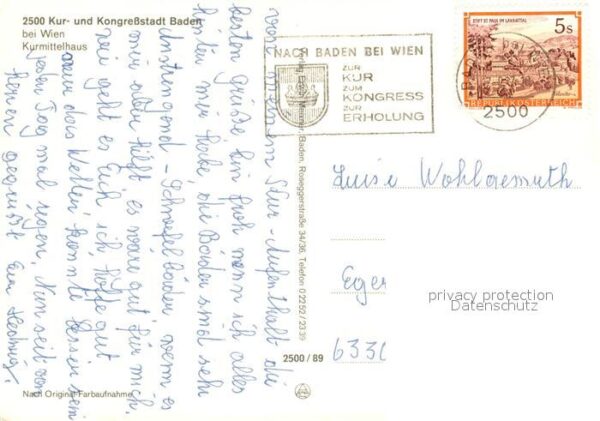 2500 Kur- und Kongreßstadt Baden
bei Wien
Kurmittelhaus
von meinem Kur-Aufenthalt die
besten Grüße bin froh wenn ich alles
hinter mir habe, die Bäder sind sehr
Anstrengend-Schwefelbäder, wenn es
mir aber hilft es wäre gut für mich.
wie geht es Euch ich hoffe gut
wenn das Wetter könnte besser sein
jeden Tag mal regen, Nun seit von
gegrüsst Eure Hedwig.
Nach Original-Farbaufnahme
Verlag Meixner, Baden, Roseggerstraße 34/36, Telefon 0 2252 / 2339
2500 / 89
NACH BADEN BEI WIEN
ZUR
KUR
ZUM
KONGRESS
ZUR
ERHOLUNG
2500
STIFT ST. PAUL IM LAVANTTAL
5s
REPUBLIK ÖSTERREICH
Luise Wohlgemuth
Eger
privacy protection
Datenschutz
6330